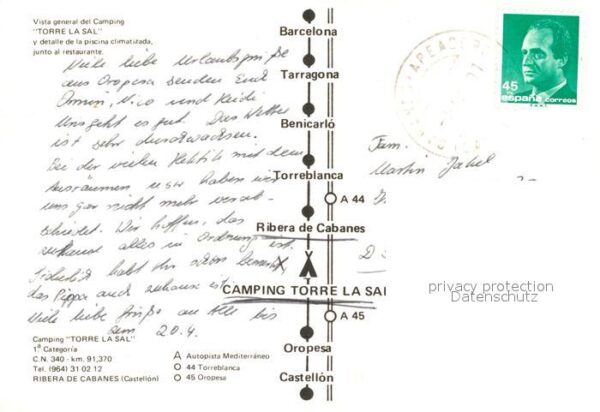 Vista general del Camping
"TORRE LA SAL"
y detalle de la piscina climatizada,
junto al restaurante.
Viele liebe Urlaubsgrüße
aus Oropesa senden Euch
Armin, Nico und Heidi
Uns geht es gut. Das Wetter
ist sehr durchwachsen.
Bei der vielen Hektik mit dem
Ausräumen usw haben wir
uns gar nicht mehr verab-
schiedet. Wir hoffen, das
zuhause alles in Ordnung ist.
habt Ihr schon bemerkt,
das Pippa auch zuhause ist
Viele liebe Grüße an Alle bis
zum 20.4.
Camping "TORRE LA SAL"
1ª Categoría
C.N. 340 - km. 91,370
Tel. (964) 31 02 12
RIBERA DE CABANES (Castellón)
A Autopista Mediterráneo
44 Torreblanca
45 Oropesa
Barcelona
Tarragona
Benicarló
Torreblanca
A 44
Ribera de Cabanes
CAMPING TORRE LA SAL
A 45
Oropesa
Castellón
45
españa correos
Fam.
Martin Jakel
D
privacy protection
Datenschutz